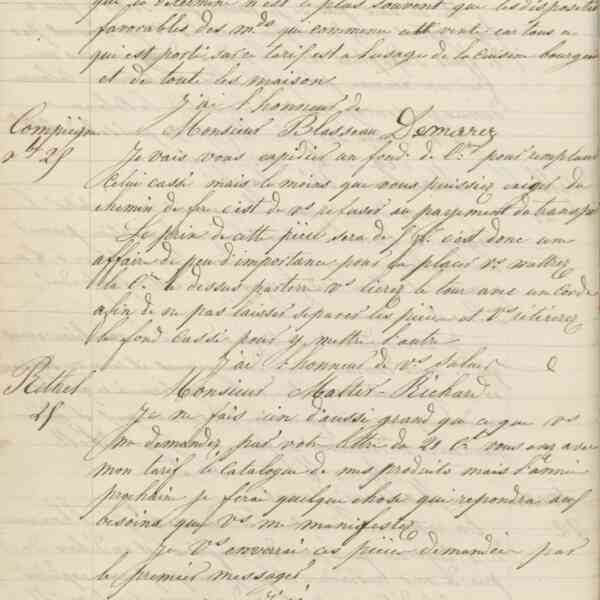 que le détermine n'est le plus souvent que les disposition
favorables des mds qui commence cette vente car tous ce
qui est porté sur ce tarif est a l'usage de la cuisine bourgeoi
et de toute les maison
J'ai l'honneur de
Compiègne Monsieur Blasseau Demerrez
25 Je vais vous expédier un fond de pour remplacer
celui cassé mais le moins que vous puissiez exiger du
chemin de fer c'est de vs refuser au payement du transpo
Le prix de cette pièce sera de c'est donc une
affaire de peu d'importance pour la placer vs mettrez
la le dessus par terre vs lierez le tour avec un corde
afin de ne pas laisser séparer les pièce et vs retirerez
le fond cassé pour y mettre l'autre
J'ai l'honneur de vs saluer
Rethel Monsieur Malter-Richard
25 Je ne fais rien d'aussi grand que ce que vs
me demandez par votre lettre du 20 ct vous avez avec
mon tarif le catalogue de mes produits mais l'année
prochain je ferai quelque chose qui repondra aux
besoins que vs me manifestez
Je vs enverrai les pièces demandée par
le premier messager
J'ai